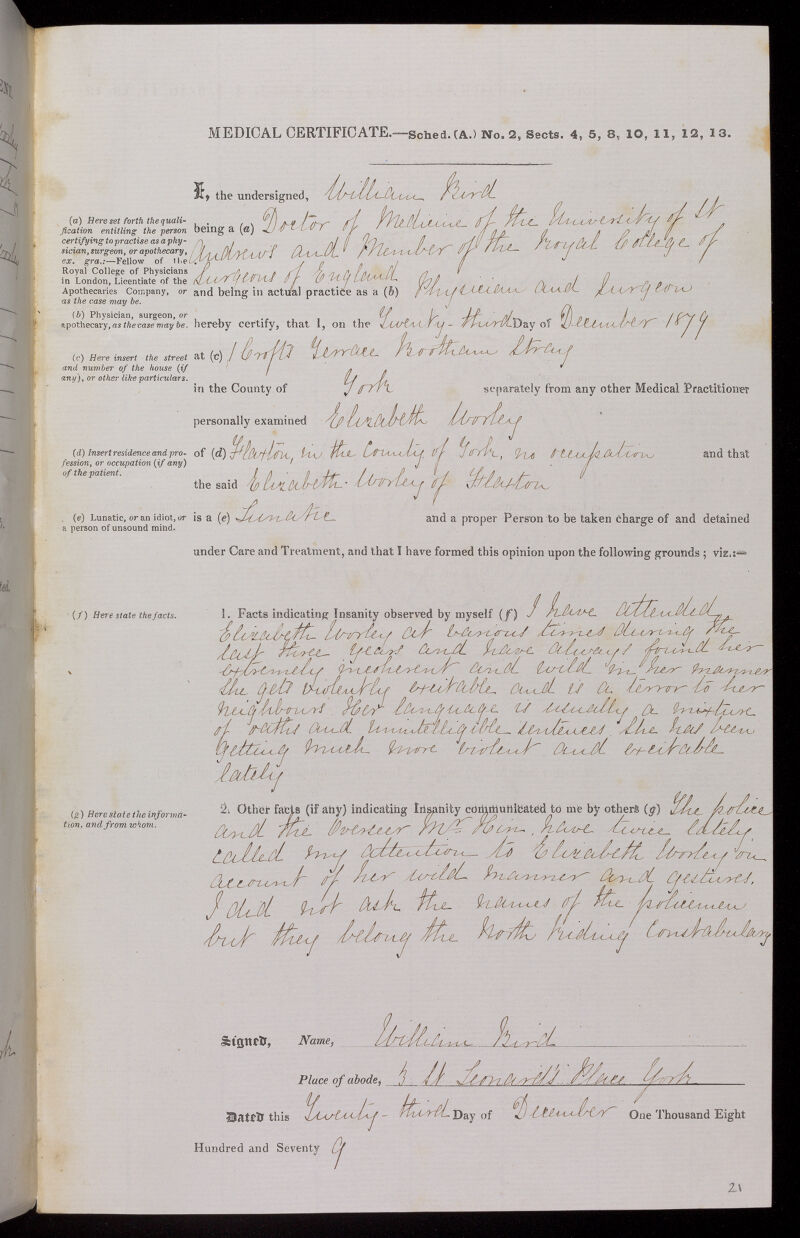 MEDICAL CERTIFICATE.—Sched. (A.) No. 2, Sects. 4, 5, 8, 10, 11, 12, 13.
I, the undersigned, William Bird
(a) Here set forth the quali-
fication entitling the person
certifying to practise as a phy-
sician, surgeon, or apothecary,
ex. gra.:—Fellow of the
Royal College of Physicians
in London, Licentiate of the
Apothecaries Company, or
as the case may be.
being a (a) Doctor of Medicine of the University of St
Andrews and Member of the Royal College of
Surgeons of England
and being in actual practice as a (b) Physician and Surgeon
(b) Physician, surgeon, or
apothecary, as the case may be.
hereby certify, that I, on the Twenty-third Day of December 1879
(c) Here insert the street
and number of the house (if
any), or other like particulars.
at (c) 1 Crofts Terrace Bootham Stray
in the County of York separately from any other Medical Practitioner
personally examined Elizabeth Worley
(d) Insert residence and pro-
fession, or occupation (if any)
of the patient.
of (d) Flaxton, in the County of York, no occupation and that
the said Elizabeth Worley of Flaxton
(e) Lunatic, or an idiot, or
a person of unsound mind.
is a (e) Lunatic and a proper Person to be taken charge of and detained
under Care and Treatment, and that I have formed this opinion upon the following grounds; viz.:—
(f) Here state the facts.
1. Facts indicating Insanity observed by myself (f) I have attended
Elizabeth Worley at various times during the
last three years and have always found her
extremely incoherent and wild in her manner
She gets violently excitable and is a terror to her
neighbours. Her language is usually a mixture
of oaths and unintelligible sentences. She has been
getting much more violent and excitable
lately
(g) Here state the informa-
tion, and from whom.
2. Other facts (if any) indicating Insanity communicated to me by others (g) The police
and the Overseer Mr. have twice lately
called my attention to Elizabeth Worley on
account of her wild manner and gestures.
I did not ask the names of the policemen
but they belong the North Riding Constabulary
Signed, Name, William Bird
Place of abode, 3 St Leonard's Place York
Dated this Twenty-third Day of December One Thousand Eight
Hundred and Seventy 9
21